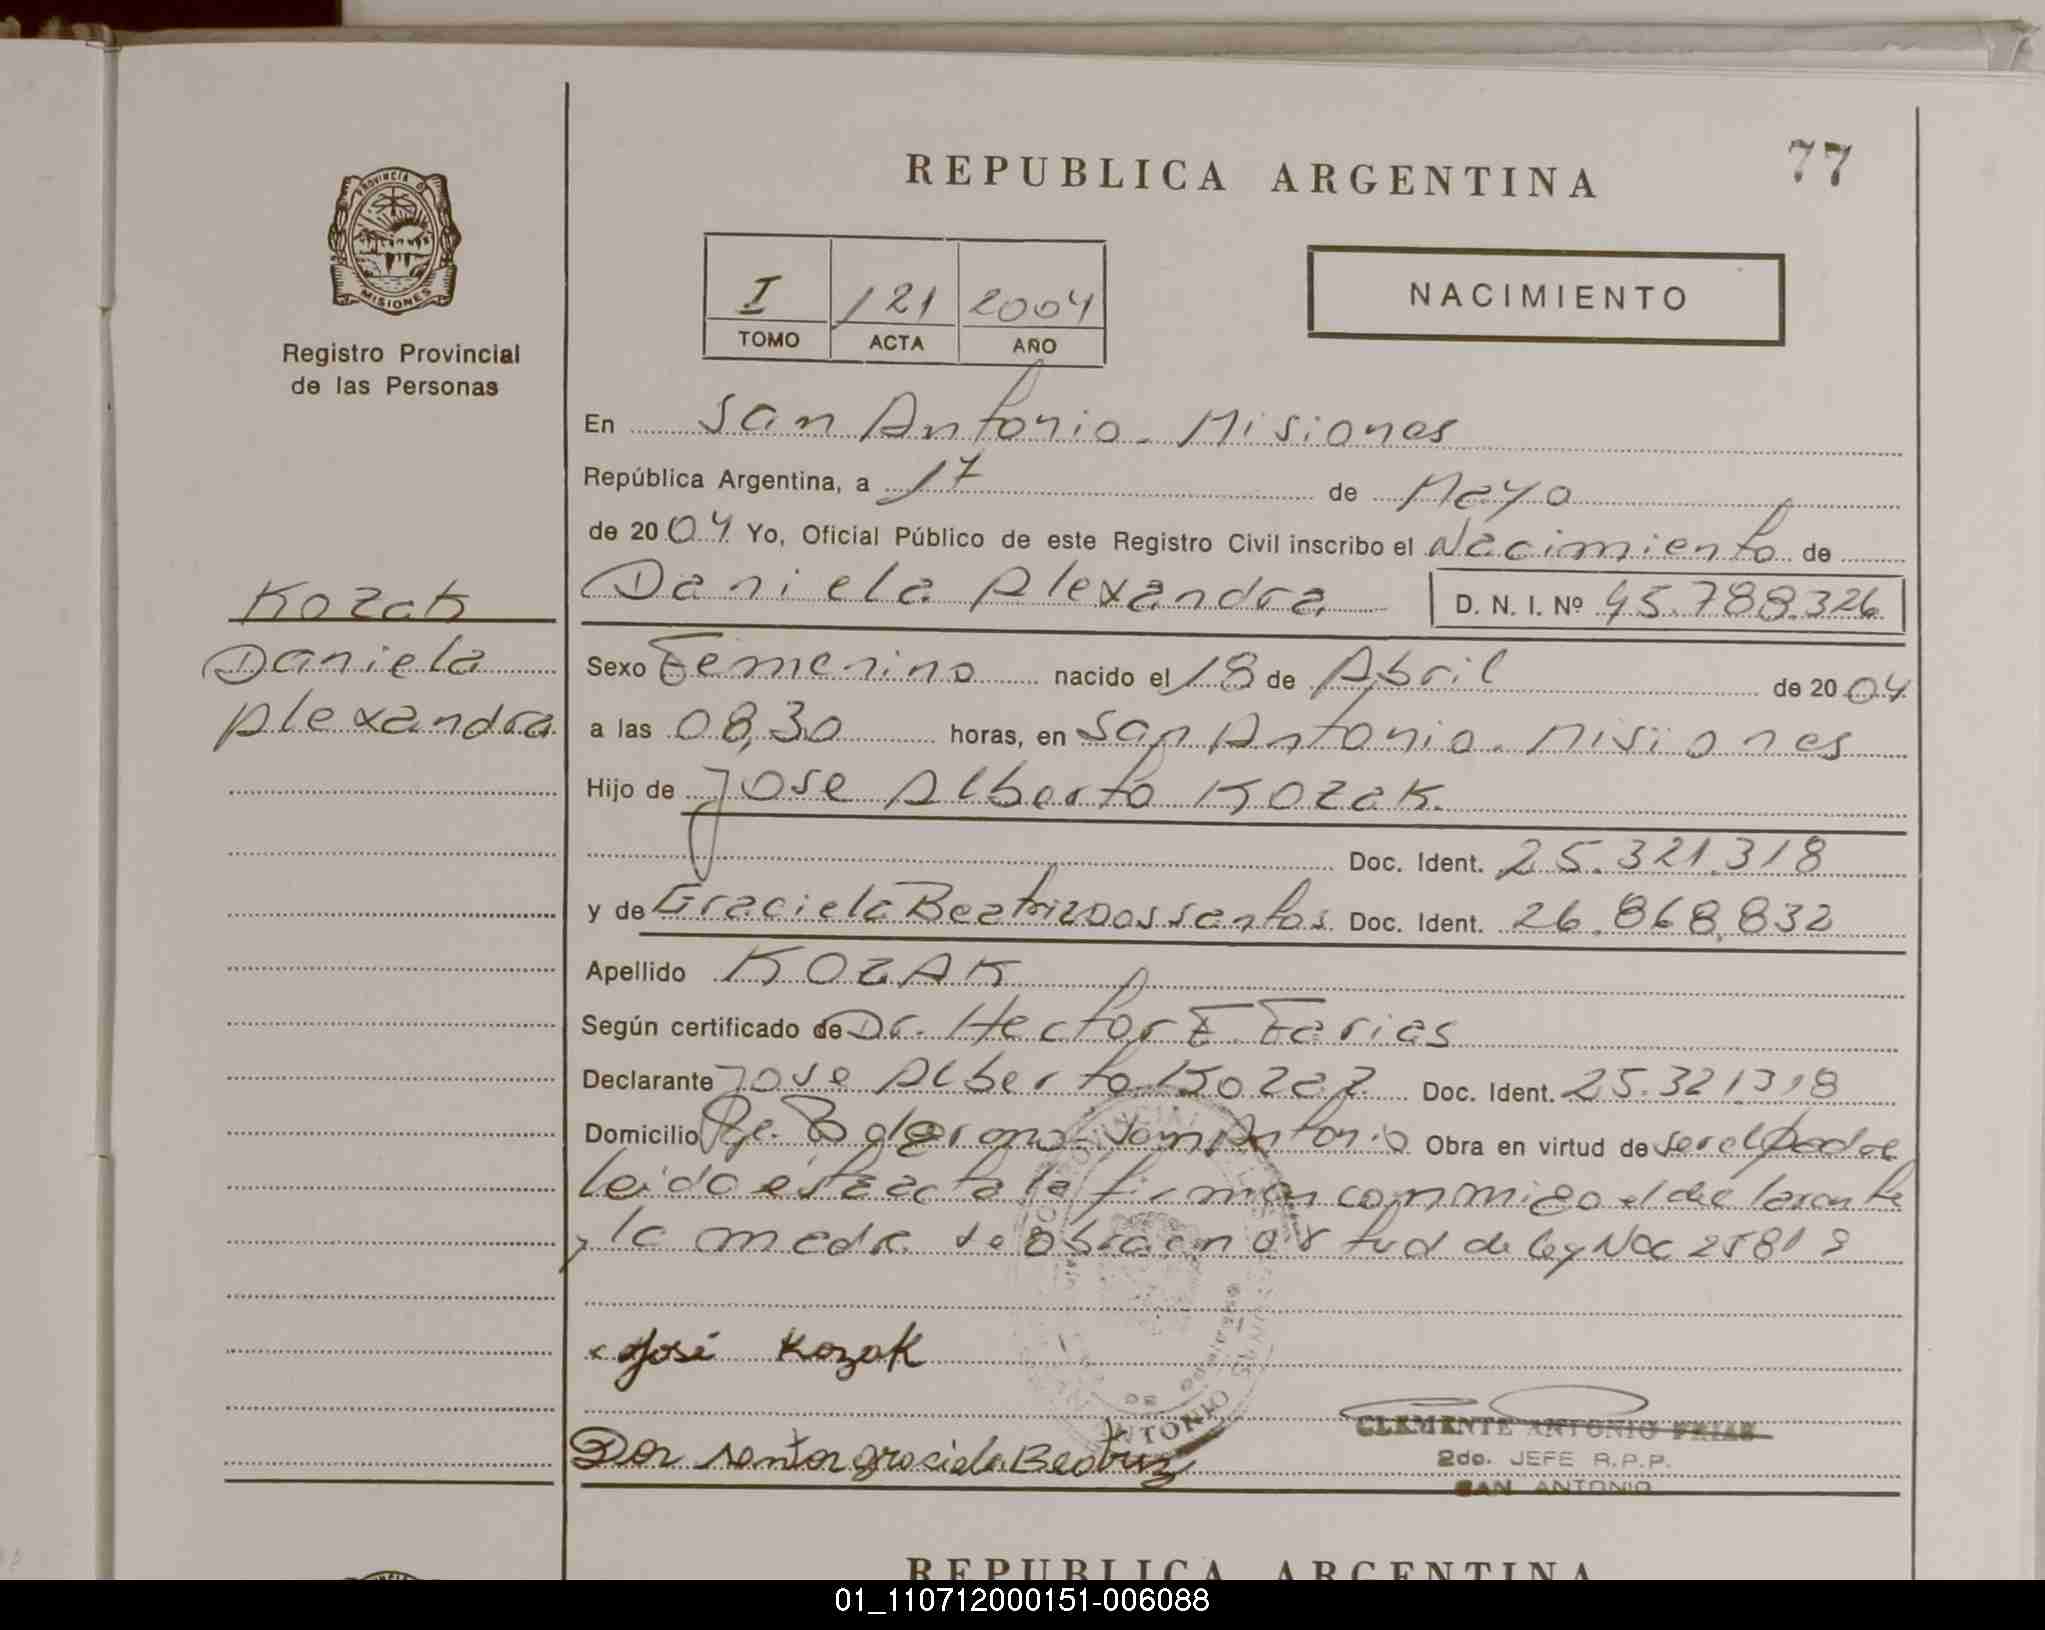 77
REPUBLICA ARGENTINA
PROVINCIA DE
MISIONES
Registro Provincial
de las Personas
I 121 2004
TOMO ACTA AÑO
NACIMIENTO
En San Antonio - Misiones
República Argentina, a 17 de Mayo
de 2004 Yo, Oficial Público de este Registro Civil inscribo el Nacimiento de
Daniela Alexandra D. N. I. Nº 45.788.326
Kozak
Daniela
Alexandra
Sexo Femenino nacido el 18 de Abril de 2004
a las 08,30 horas, en San Antonio - Misiones
Hijo de Jose Alberto Kozak
Doc. Ident. 25.321.318
y de Graciela Beatriz Dos santos Doc. Ident. 26.868.832
Apellido KOZAK
Según certificado de Dr. Hector F. Farias
Declarante Jose Alberto Kozaz Doc. Ident. 25.321318
Domicilio San Antonio Obra en virtud de ser el padre
leida esta acta la firman conmigo el declarante
y la madre se obra en virtud de ley Nº 25819
José Kozak
Dos santos graciela Beatriz
CLEMENTE ANTONIO FRIAS
2do. JEFE R.P.P.
SAN ANTONIO
REPUBLICA ARGENTINA
01_110712000151-006088